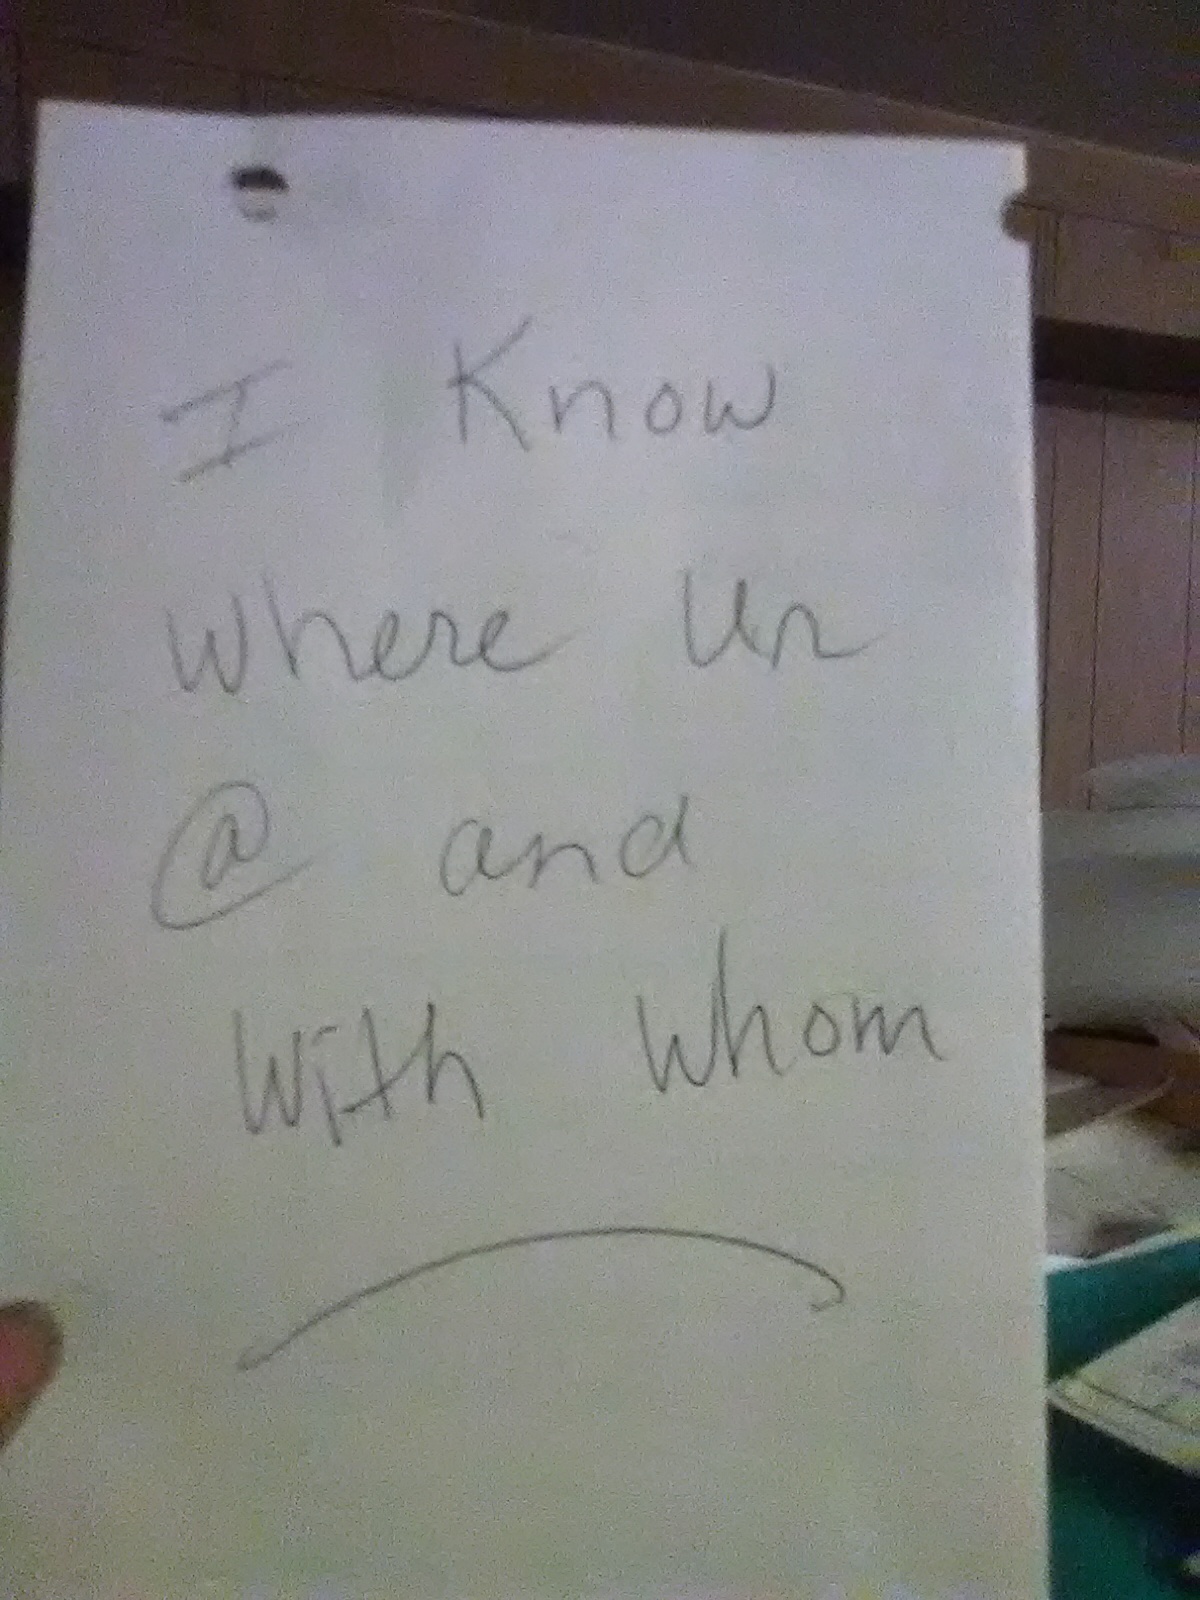 I Know
where Ur
@ and
With Whom